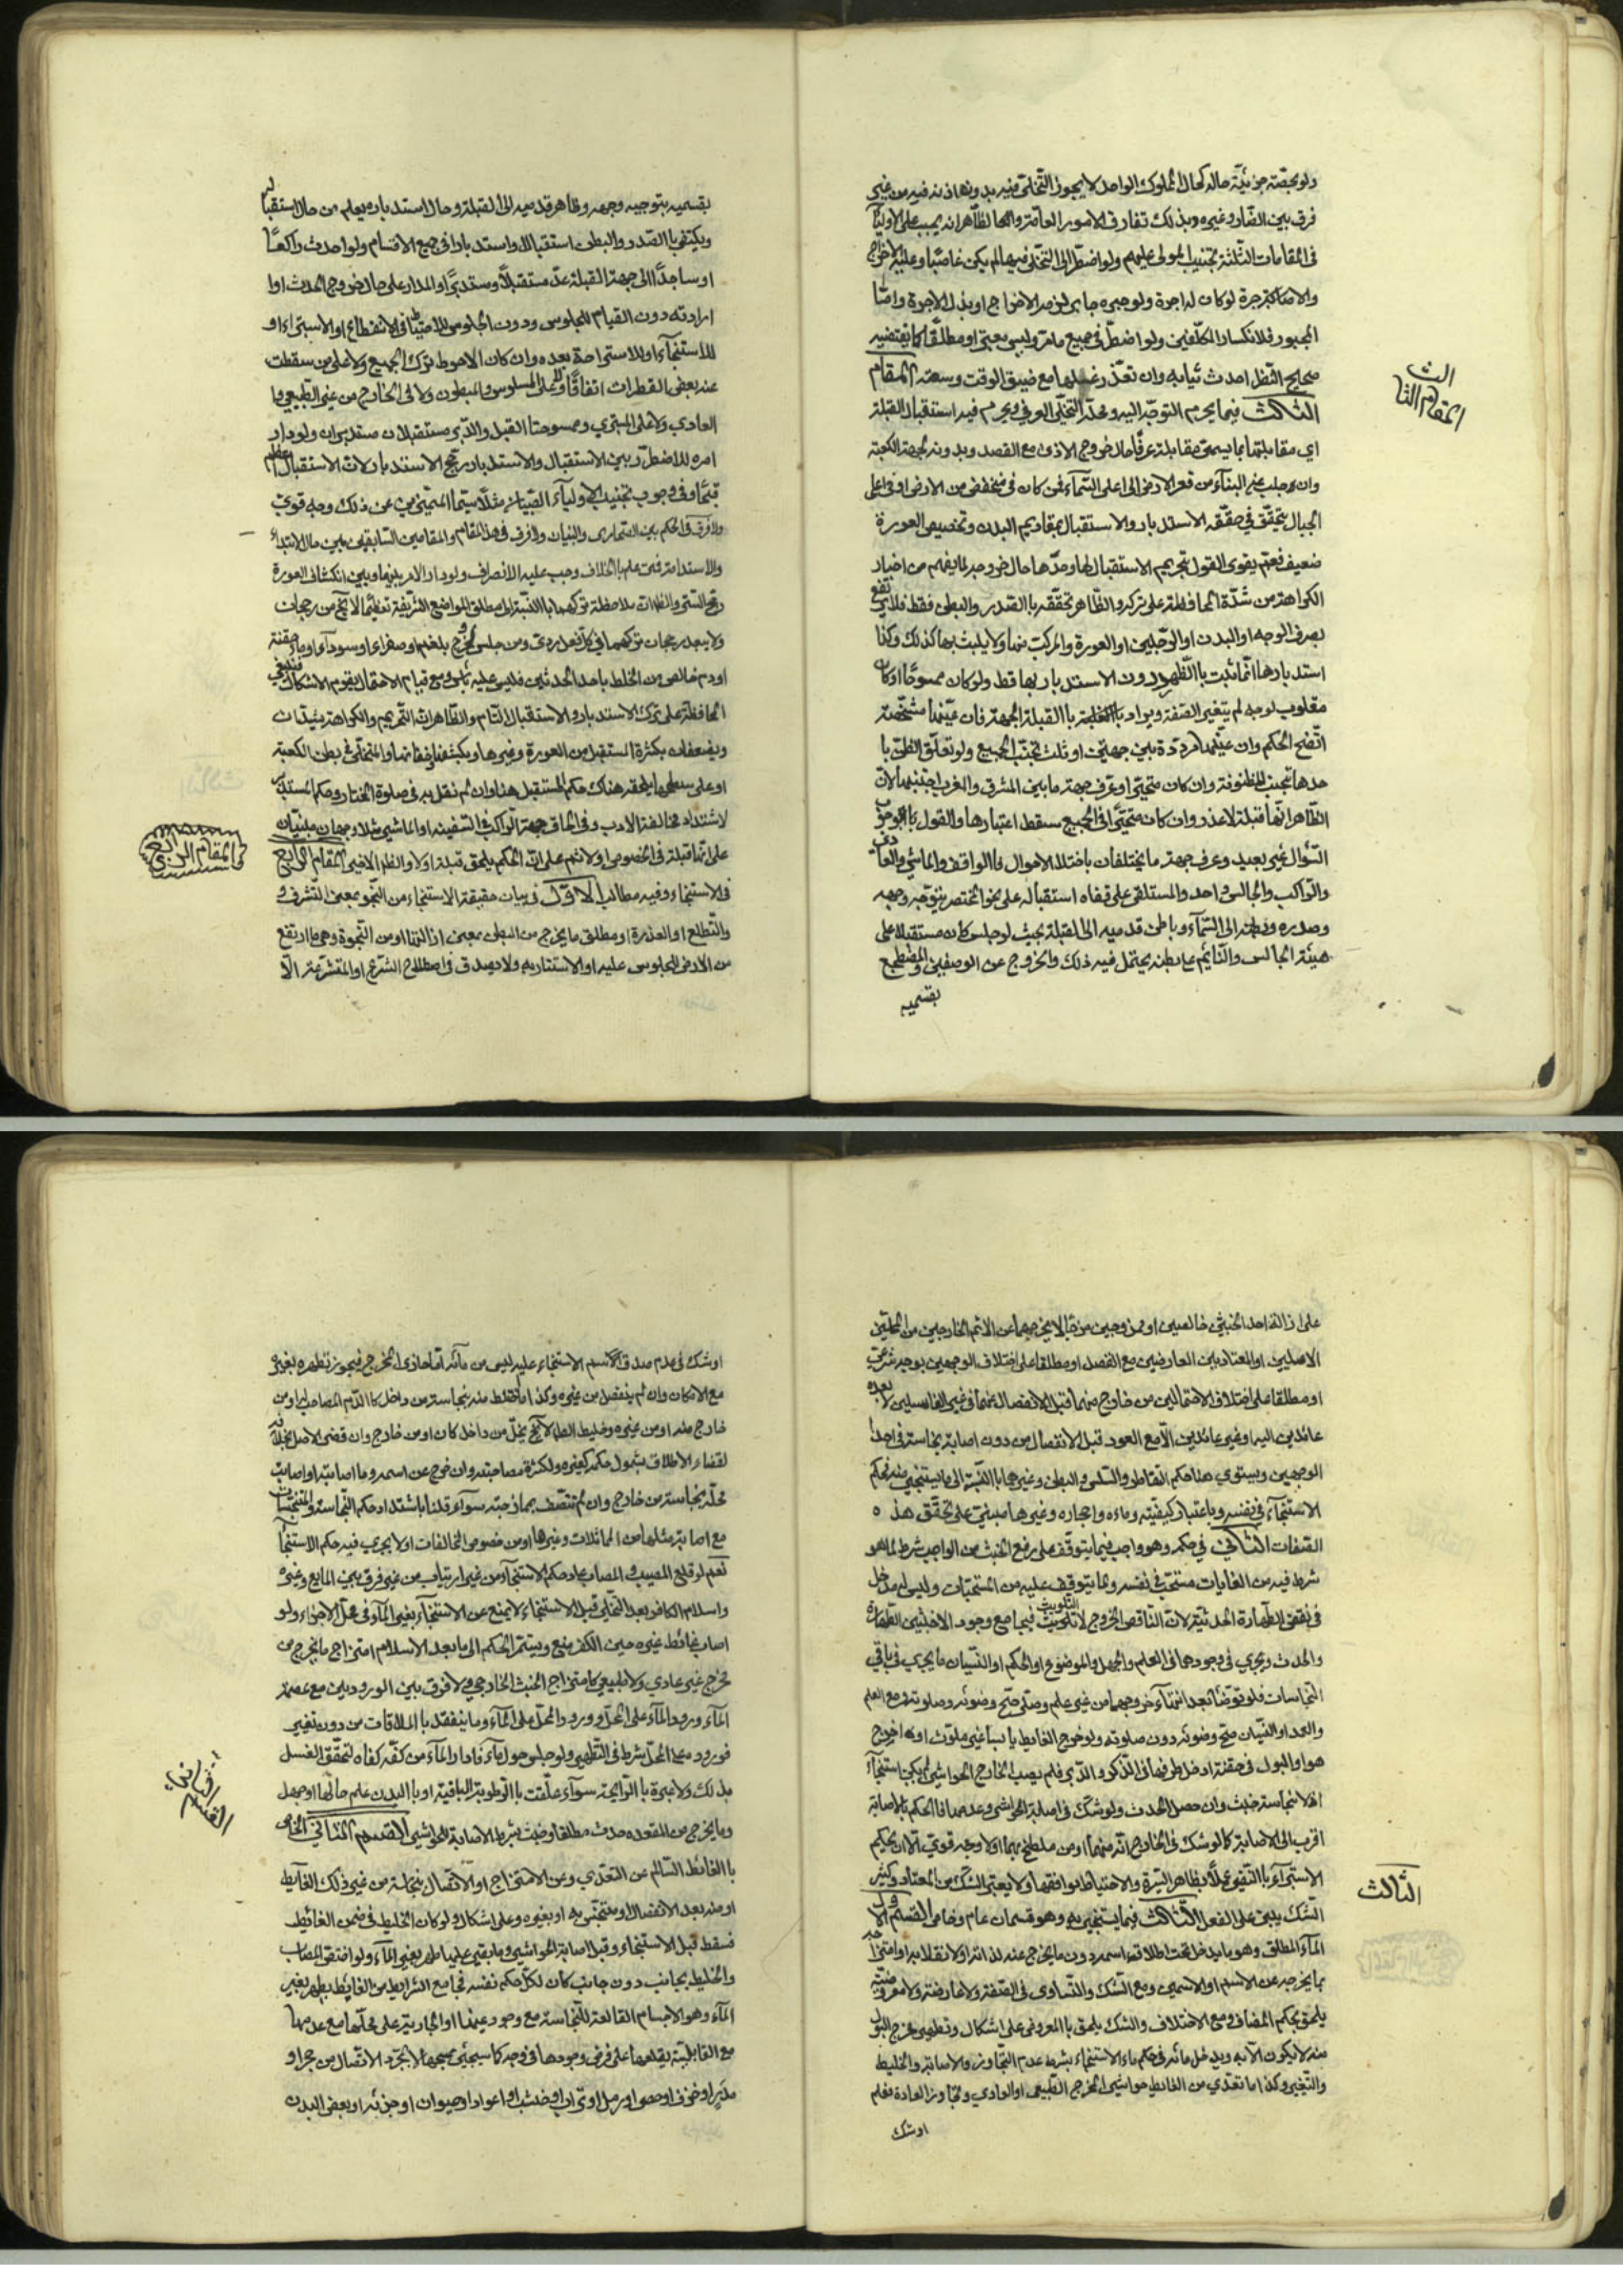 ولو بحصّة جزئيّة حاله كحال المملوك الواحد لا يجوز التخلّي فيه بدونها
فرق بين الضارّ وغيره وبذلك تفارق الامور العامّة
في المقامات الثلثة تجنيب المولى عليهم ولو اضطرّ الى التخلّي فيها لم يكن غاصبًا وعليه الاخراج
والاصلاح
المجبور ولو اضطرّ في جميع مامرّ
احدث ثيابه وان تعذّر غسلها مع ضيق الوقت وسعته المقام
المقام الثالث
الثالث فيما يحرم التوجّه اليه ومحلّه التخلّي العرفي ويحرم فيه استقبال القبلة
اي مقابلتها بما يسمّى مقابلة عرفًا حال خروج الاذى مع القصد وبدونه لجهة الكعبة
من قعر الارض الى اعلى السّمآء فمن كان في منخفض من الارض او في اعلى
الجبال يتحقّق في حقّه الاستدبار والاستقبال بمقاديم البدن وتخصيص العورة
ضعيف نعم يقوى القول بتحريم الاستقبال بها وحدها حال خروجه لما يفهم من اخبار
الكراهة من شدّة المحافظة على تركه والظّاهر تحقّقه بالصّدر والبطن فقط فلا يرتفع
بصرف الوجه او اليدين او الرّجلين او العورة والمركّب منها ولا يثبت بها كذلك وكذا
استدبارها انّما يثبت بالظّهر دون الاستدبار بها فقط ولو كان ممسوخًا او كان
مقلوب الوجه لم يتغيّر الصّفة ويراد بالقبلة الجهة فان عيّنها مشخّصة
اتّضح الحكم وان عيّنها مردّدة بين جهتين او ثلث تجنّب الجميع ولو تعلّق الظنّ با
حدها تجنّب المظنونة وان كان متحيّرًا وعرف جهة ما بين المشرق والمغرب اجتنبها لانّ
الظّاهر انّها قبلة لاعذر وان كان متحيّرًا في الجميع سقط اعتبارها والقول بالوجوب
السّؤال غير بعيد وعرف جهة ما يختلفان باختلاف الاحوال فالواقف والماشي والعادي
والرّاكب والجالس واحد والمستلقي على قفاه استقباله على نحو المحتضر بتوجّه وجهه
وصدره وبطنه الى السّمآء وباطن قدميه الى القبلة بحيث لو جلس كان مستقبلًا على
هيئة الجالس والنّائم على بطنه يحتمل فيه ذلك والخروج عن الوصفين والمضطجع
بقسميه
بقسميه بتوجيه وجهه وظاهر قدميه الى القبلة وحال استدباره يعلم من حال استقباله
ويكتفى بالصّدر والبطن استقبالًا واستدبارًا في جميع الاقسام ولو احدث راكعًا
او ساجدًا الى جهة القبلة عدّ مستقبلًا ومستدبرًا والمدار على حال خروج الحدث او
ارادته دون القيام للجلوس ودون الجلوس للاحتياط في الانقطاع او الاستبراء او
للاستنجآء او للاستراحة بعده وان كان الاحوط ترك الجميع ولا على من سقطت
عنه بعض القطرات اتفاقًا ولا على المسلوس والمبطون ولا في الخارج من غير الطّبيعي
العادي ولا على المستبري وممسوحتا القبل والدّبر مستقبلان مستدبران ولو دار
امره للاضطرار بين الاستقبال والاستدبار رجّح الاستدبار لانّ الاستقبال اعظم
قبحًا وفي وجوب تجنيب الاوليآء الصّبيان مثلًا سيّما المميّزين عن ذلك وجه قويّ
ولا فرق في الحكم بين الصّحاري والبنيان ولا فرق في هذا المقام والمقامين السّابقين بين حال الابتدآء
والاستدامة فمتى علم بالخلاف وجب عليه الانصراف ولو دار الامر بينها وبين انكشاف العورة
رجّح السّتر
ولا يبعد رجحان تركهما في كلّ فعل رديّ ومن جلس لخروج بلغم او صفراء او سودآء او مآء حقنة
او دم خالص من الخلط باحد الحدثين فليس عليه بأس ومع قيام الاحتمال يقوم الاشكال فينبغي
المحافظة على ترك الاستدبار والاستقبال التّام والظّاهر انّ التّحريم والكراهة يشتدّان
ويضعفان بكثرة المستقبل من العورة وغيرها وبكشفها واخفائها والمتخلّي في بطن الكعبة
او على سطحها يلحقه هناك حكم المستقبل هنا وان لم نقل به في صلوة المختار وحكم المستدبر
لاشتداد مخالفة الادب وفي الحاق جهة الرّاكب في السّفينة او الماشي مثلًا وجهان مبنيّان
والمقام الرّابع
على انّها قبلة في الخصوص اولا ثم على انّ الحكم يلحق قبلة اولا والظاهر الاخير المقام الرّابع
في الاستنجاء وفيه مطالب الاوّل في بيان حقيقة الاستنجاء من النّجو بمعنى التّشرف و
والتّطلع او العذرة او مطلق ما يخرج من البطن بمعنى ازالتها او من النّجوة وهي ما ارتفع
من الارض للجلوس عليه او الاستتار به ولا يصدق في اصطلاح الشّرع او المتشرّعة الّا
على ازالة احد الخبثين خالصين او ممزوجين من الخارجين من المحلّين
الاصليين او المعتادين العارضين مع الفصل او مطلقا على اختلاف الوجهين بوجه شرعيّ
او مطلقا على اختلاف الاحتمالين من خارج منها قبل الانفصال عنها في غير الغاسلين لا بعده
عائدين اليه او غير عائدين الّا مع العود قبل الانفصال من دون اصابة نجاسة في احد
الوجهين ويستوي هنا حكم التّقاطر والسّلس والبطن وغيرها بالنّسبة الى ما يستنجى منه فحكم
الاستنجآء في نفسه وباعتبار كيفيّته وماءه واحجاره وغيرها مبنيّ على تحقّق هذه
الصّفات الثّاني في حكمه وهو واجب فيما يتوقّف على رفع الخبث من الواجب شرط لما هو
شرط فيه من الغايات مستحبّ في نفسه ولما يتوقّف عليه من المستحبّات وليس له مدخل
في نقض الطّهارة الحدثيّة لانّ النّاقض الخروج لا التلويث فيجامع وجود الاخبثين الطّهارة
والحدث ويجري في وجودها في العلم والجهل والموضوع او الحكم او النّسيان ما يجري في باقي
النّجاسات فلو توضّأ بعد انتهآء خروجهما من غير علم وصلّى صحّ وضوئه وصلوته ومع العلم
والعمد او النّسيان صحّ وضوئه دون صلوته ولو خرج الغايط يابسا غير ملوّث او اخرج
هو او البول في حقنة ادخل طرفها في الذّكر والدّبر فلم يصب الخارج الحواشي لم يكن استنجآء
اذ لا نجاسة خبث وان حصل الحدث ولو شكّ في اصابة الحواشي وعدمها فالحكم بالاصابة
اقرب الى الاصابة كما لو شكّ في الخارج انّه منهما او من ملطّخ بهما اولا وجه قويّ الّا ان يحكم
الاستبرآء بالنّفي عملًا بظاهر السّيرة والاحتياط موافقها ولا يعتبر الشّكّ من المعتاد وكثير
الثّالث
الشّك يبني على الفعل الثّالث فيما يستنجى به وهو قسمان عام وخاص القسم الاوّل
المآء المطلق وهو ما يدخل تحت اطلاقه اسمه دون ما يخرج عنه لذاته او لانقلابه او امتزاجه
بما يخرجه عن الاسم او الاسمين ومع الشّك والتّساوي في الصّفة ولا عارضة ولا معروضيّة
يلحق بحكم المضاف ومع الاختلاف والشك يلحق بالمعروض على اشكال وتطهير مخرج البول
منه لا يكون الّا به ويدخل مائه في حكم ماء الاستنجاء بشرط عدم التّجاوز والاصابة والخليط
والتّغير وكذا ما تعدّي من الغايط حواشي المخرج الطّبيعي او العادي وتجاوز العادة فعلم
او شك
او شك في عدم صدق اسم الاستنجاء عليه ليس من مآئه امّا حاذى المخرج فيجوز تطهيره بغيره
مع الامكان وان لم ينفصل من غيره وكذا ما اختلط منه بنجاسة من داخل كالدّم المصاحب له او من
خارج منه او من غيره وخليط الطاهر
لقضاء الاطلاق بشمول حكمه كغيره ولكثرة مصاحبته وان خرج عن اسمه وما اصابته او اصابت
محلّه نجاسة من خارج وان لم تتّصف بممازجته سوآء قلنا باشتداد حكم النّجاسة والمتنجّسات
مع اصابة مثلها من المماثلات وغيرها او من خصوص المخالفات اولا يجري فيه حكم الاستنجآ
نعم لو قلع المصيب والمصاب عاد حكم الاستنجآء من غير ارتياب من غير فرق بين المايع وغيره
واسلام الكافر بعد التّخلي قبل الاستنجاء لا يمنع عن الاستنجآء بغير المآء في محلّ الاجزاء ولو
اصاب غائط غيره حين الكفر منع ويستمرّ الحكم الى ما بعد الاسلام امتزاج ما يخرج من
مخرج غير عادي ولا طبيعي كامتزاج الخبث الخارجي ولا فرق بين الورودين مع عصمة
المآء ورود المآء على المحلّ وورود المحلّ على المآء وما ينفعل بالملاقات من دون تغيير
فوروده على المحلّ شرط في التّطهير ولو جلس حول مآء فادار المآء من كفّه كفاه لتحقّق الغسل
القسم الثاني
بذلك ولا عبرة بالرّايحة سوآء علّقت بالرّطوبة الباقية او باليدين علم حالها او جهل
وما يخرج من المقعدة حدث مطلقا وخبث بشرط الاصابة للحواشي القسم الثاني الخاص
بالغائط السّالم عن التّعدّي وعن الامتزاج او الاتّصال بنجاسة من غير ذلك الغآيط
او منه بعد الانفصال او متنجّس به او بغيره وعلى اشكال ولو كان الخليط في ضمن الغائط
فسقط قبل الاستنجاء وقبل اصابة الحواشي وما بقي عليها طهر بغير المآء ولو اختصّ المصاب
والخليط بجانب دون جانب كان لكلّ حكم نفسه فجامع الشرايط من الغايط يطهر بغير
المآء وهو الاجسام القالعة للنّجاسة مع وجود عينها او الجارية على محلّها مع عدمها
مع القابليّة بقلعها على فرض وجودها في وجه كما سيجيء لا بمجرّد الاتّصال من حجر او
مدر او خزف او حصى او رمل او تراب او خشب او اعواد او حيوان او جزئه او بعض البدن